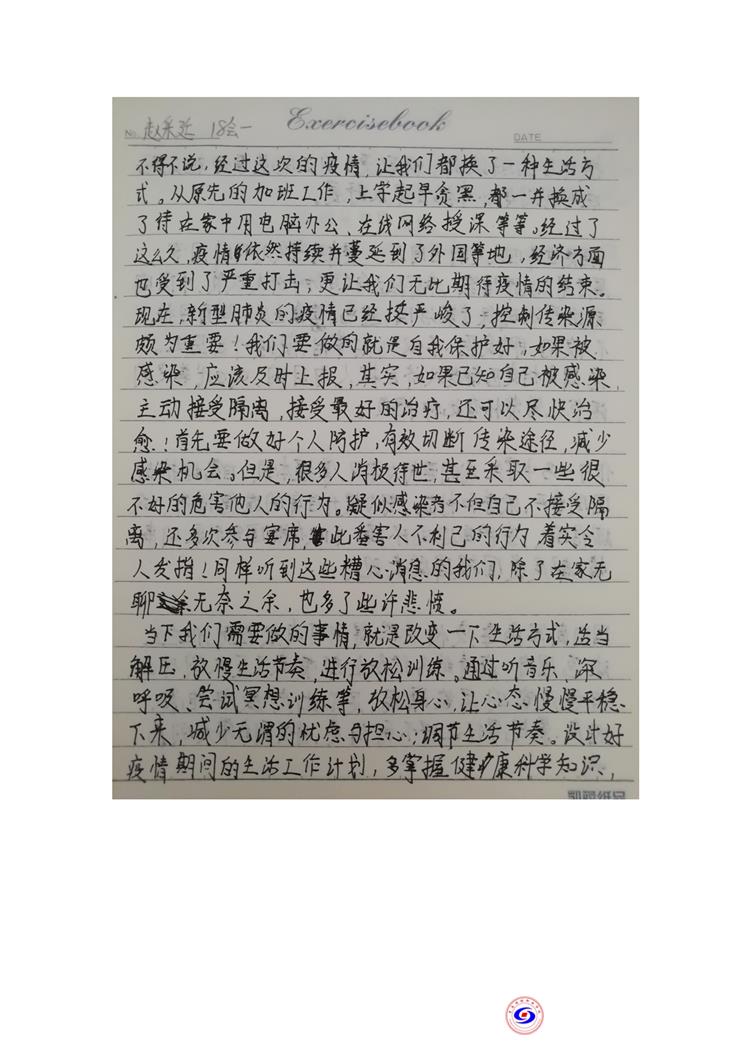 Exercisebook
No. 赵采延 18会一
DATE
不得不说，经过这次的疫情，让我们都换了一种生活方
式。从原先的加班工作，上学起早贪黑，都一并换成
了待在家中用电脑办公、在线网络授课等等。经过了
这么久，疫情依然持续并蔓延到了外国等地，经济方面
也受到了严重打击；更让我们无比期待疫情的结束。
现在，新型肺炎的疫情已经挺严峻了，控制传染源
颇为重要！我们要做的就是自我保护好，如果被
感染，应该及时上报，其实，如果已知自己被感染，
主动接受隔离，接受最好的治疗，还可以尽快治
愈！首先要做好个人防护，有效切断传染途径，减少
感染机会。但是，很多人消极待世，甚至采取一些很
不好的危害他人的行为。疑似感染者不但自己不接受隔
离，还多次参与宴席，此番害人不利己的行为着实令
人发指！同样听到这些糟心消息的我们，除了在家无
聊无奈之余，也多了些许悲愤。
当下我们需要做的事情，就是改变一下生活方式，适当
解压，放慢生活节奏，进行放松训练。通过听音乐、深
呼吸、尝试冥想训练等，放松身心，让心态慢慢平稳
下来，减少无谓的忧虑与担心；调节生活节奏。设计好
疫情期间的生活工作计划，多掌握健康科学知识，